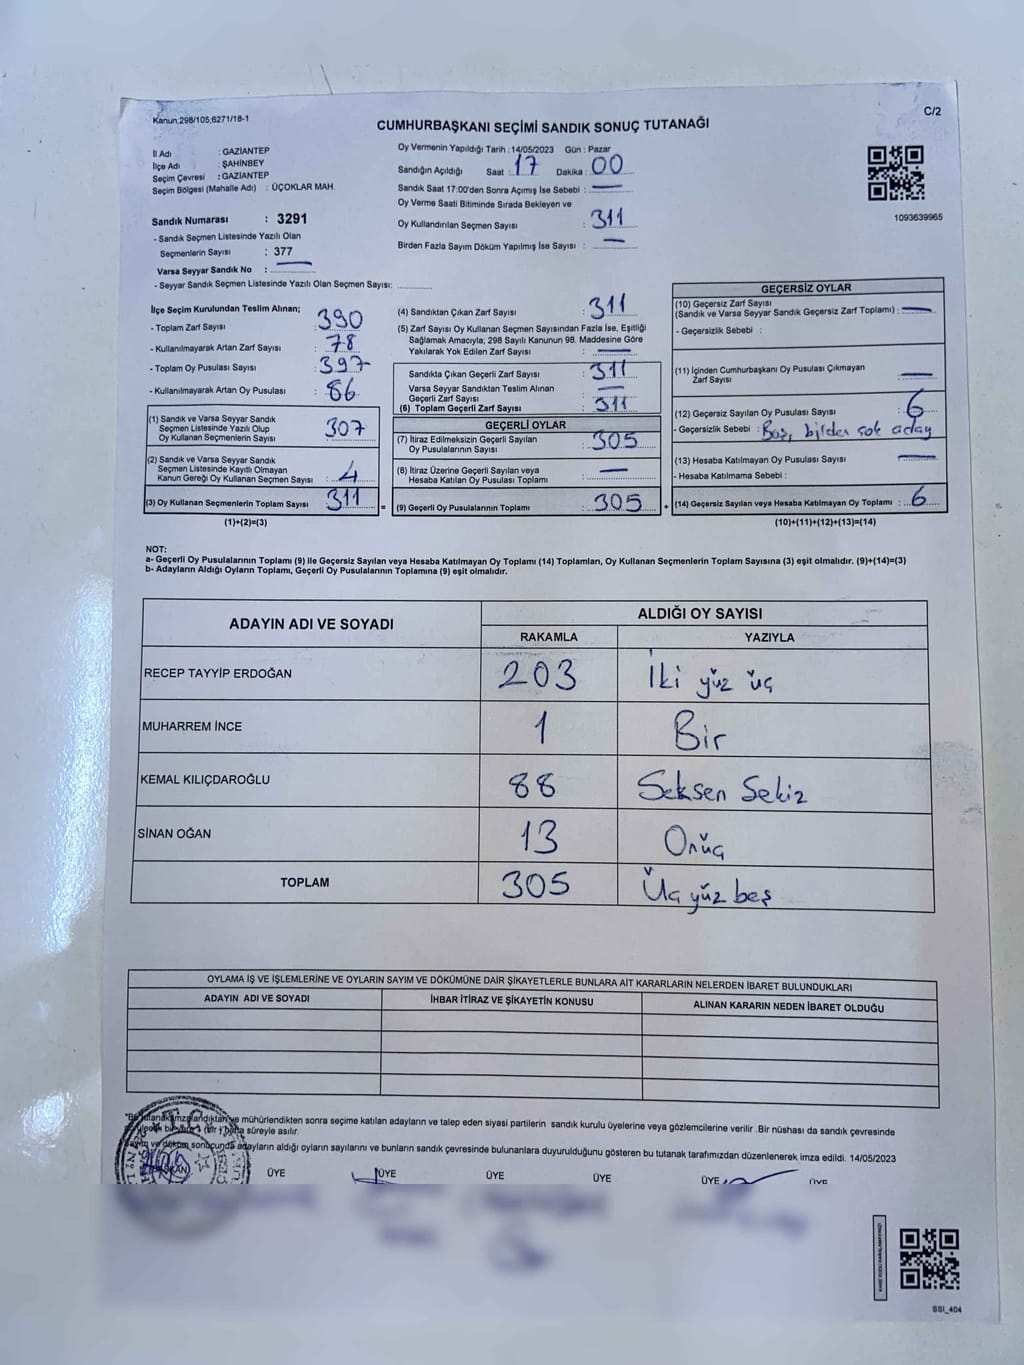 Kanun,298/105,6271/18-1
C/2
CUMHURBAŞKANI SEÇİMİ SANDIK SONUÇ TUTANAĞI
İl Adı : GAZİANTEP
İlçe Adı : ŞAHİNBEY
Seçim Çevresi : GAZİANTEP
Seçim Bölgesi (Mahalle Adı) : ÜÇOKLAR MAH.
Sandık Numarası : 3291
- Sandık Seçmen Listesinde Yazılı Olan
Seçmenlerin Sayısı : 377
Varsa Seyyar Sandık No :
- Seyyar Sandık Seçmen Listesinde Yazılı Olan Seçmen Sayısı:
Oy Vermenin Yapıldığı Tarih : 14/05/2023 Gün : Pazar
Sandığın Açıldığı Saat : 17 Dakika : 00
Sandık Saat 17:00'den Sonra Açımış İse Sebebi : —
Oy Verme Saati Bitiminde Sırada Bekleyen ve
Oy Kullandırılan Seçmen Sayısı : 311
Birden Fazla Sayım Döküm Yapılmış İse Sayısı : —
1093639965
İlçe Seçim Kurulundan Teslim Alınan;
- Toplam Zarf Sayısı : 390
- Kullanılmayarak Artan Zarf Sayısı : 78
- Toplam Oy Pusulası Sayısı : 397
- Kullanılmayarak Artan Oy Pusulası : 86
(1) Sandık ve Varsa Seyyar Sandık
Seçmen Listesinde Yazılı Olup
Oy Kullanan Seçmenlerin Sayısı 307
(2) Sandık ve Varsa Seyyar Sandık
Seçmen Listesinde Kayıtlı Olmayan
Kanun Gereği Oy Kullanan Seçmen Sayısı : 4
(3) Oy Kullanan Seçmenlerin Toplam Sayısı 311 =
(1)+(2)=(3)
(4) Sandıktan Çıkan Zarf Sayısı : 311
(5) Zarf Sayısı Oy Kullanan Seçmen Sayısından Fazla İse, Eşitliği
Sağlamak Amacıyla; 298 Sayılı Kanunun 98. Maddesine Göre
Yakılarak Yok Edilen Zarf Sayısı : —
Sandıkta Çıkan Geçerli Zarf Sayısı : 311
Varsa Seyyar Sandıktan Teslim Alınan
Geçerli Zarf Sayısı : —
(6) Toplam Geçerli Zarf Sayısı : 311
GEÇERLİ OYLAR
(7) İtiraz Edilmeksizin Geçerli Sayılan
Oy Pusulalarının Sayısı : 305
(8) İtiraz Üzerine Geçerli Sayılan veya
Hesaba Katılan Oy Pusulası Toplamı : —
(9) Geçerli Oy Pusulalarının Toplamı : 305 +
GEÇERSİZ OYLAR
(10) Geçersiz Zarf Sayısı
(Sandık ve Varsa Seyyar Sandık Geçersiz Zarf Toplamı) : —
- Geçersizlik Sebebi :
(11) İçinden Cumhurbaşkanı Oy Pusulası Çıkmayan
Zarf Sayısı —
(12) Geçersiz Sayılan Oy Pusulası Sayısı : 6
- Geçersizlik Sebebi : Boş, birden çok aday
(13) Hesaba Katılmayan Oy Pusulası Sayısı : —
- Hesaba Katılmama Sebebi :
(14) Geçersiz Sayılan veya Hesaba Katılmayan Oy Toplamı : 6
(10)+(11)+(12)+(13)=(14)
NOT:
a- Geçerli Oy Pusulalarının Toplamı (9) ile Geçersiz Sayılan veya Hesaba Katılmayan Oy Toplamı (14) Toplamları, Oy Kullanan Seçmenlerin Toplam Sayısına (3) eşit olmalıdır. (9)+(14)=(3)
b- Adayların Aldığı Oyların Toplamı, Geçerli Oy Pusulalarının Toplamına (9) eşit olmalıdır.
ADAYIN ADI VE SOYADI ALDIĞI OY SAYISI
RAKAMLA YAZIYLA
RECEP TAYYİP ERDOĞAN 203 İki yüz üç
MUHARREM İNCE 1 Bir
KEMAL KILIÇDAROĞLU 88 Seksen Sekiz
SİNAN OĞAN 13 Onüç
TOPLAM 305 Üç yüz beş
OYLAMA İŞ VE İŞLEMLERİNE VE OYLARIN SAYIM VE DÖKÜMÜNE DAİR ŞİKAYETLERLE BUNLARA AİT KARARLARIN NELERDEN İBARET BULUNDUKLARI
ADAYIN ADI VE SOYADI İHBAR İTİRAZ VE ŞİKAYETİN KONUSU ALINAN KARARIN NEDEN İBARET OLDUĞU
mühürlendikten sonra seçime katılan adayların ve talep eden siyasi partilerin sandık kurulu üyelerine veya gözlemcilerine verilir .Bir nüshası da sandık çevresinde
süreyle asılır.
adayların aldığı oyların sayılarını ve bunların sandık çevresinde bulunanlara duyurulduğunu gösteren bu tutanak tarafımızdan düzenlenerek imza edildi. 14/05/2023
ÜYE ÜYE ÜYE ÜYE ÜYE ÜYE
SSI_404